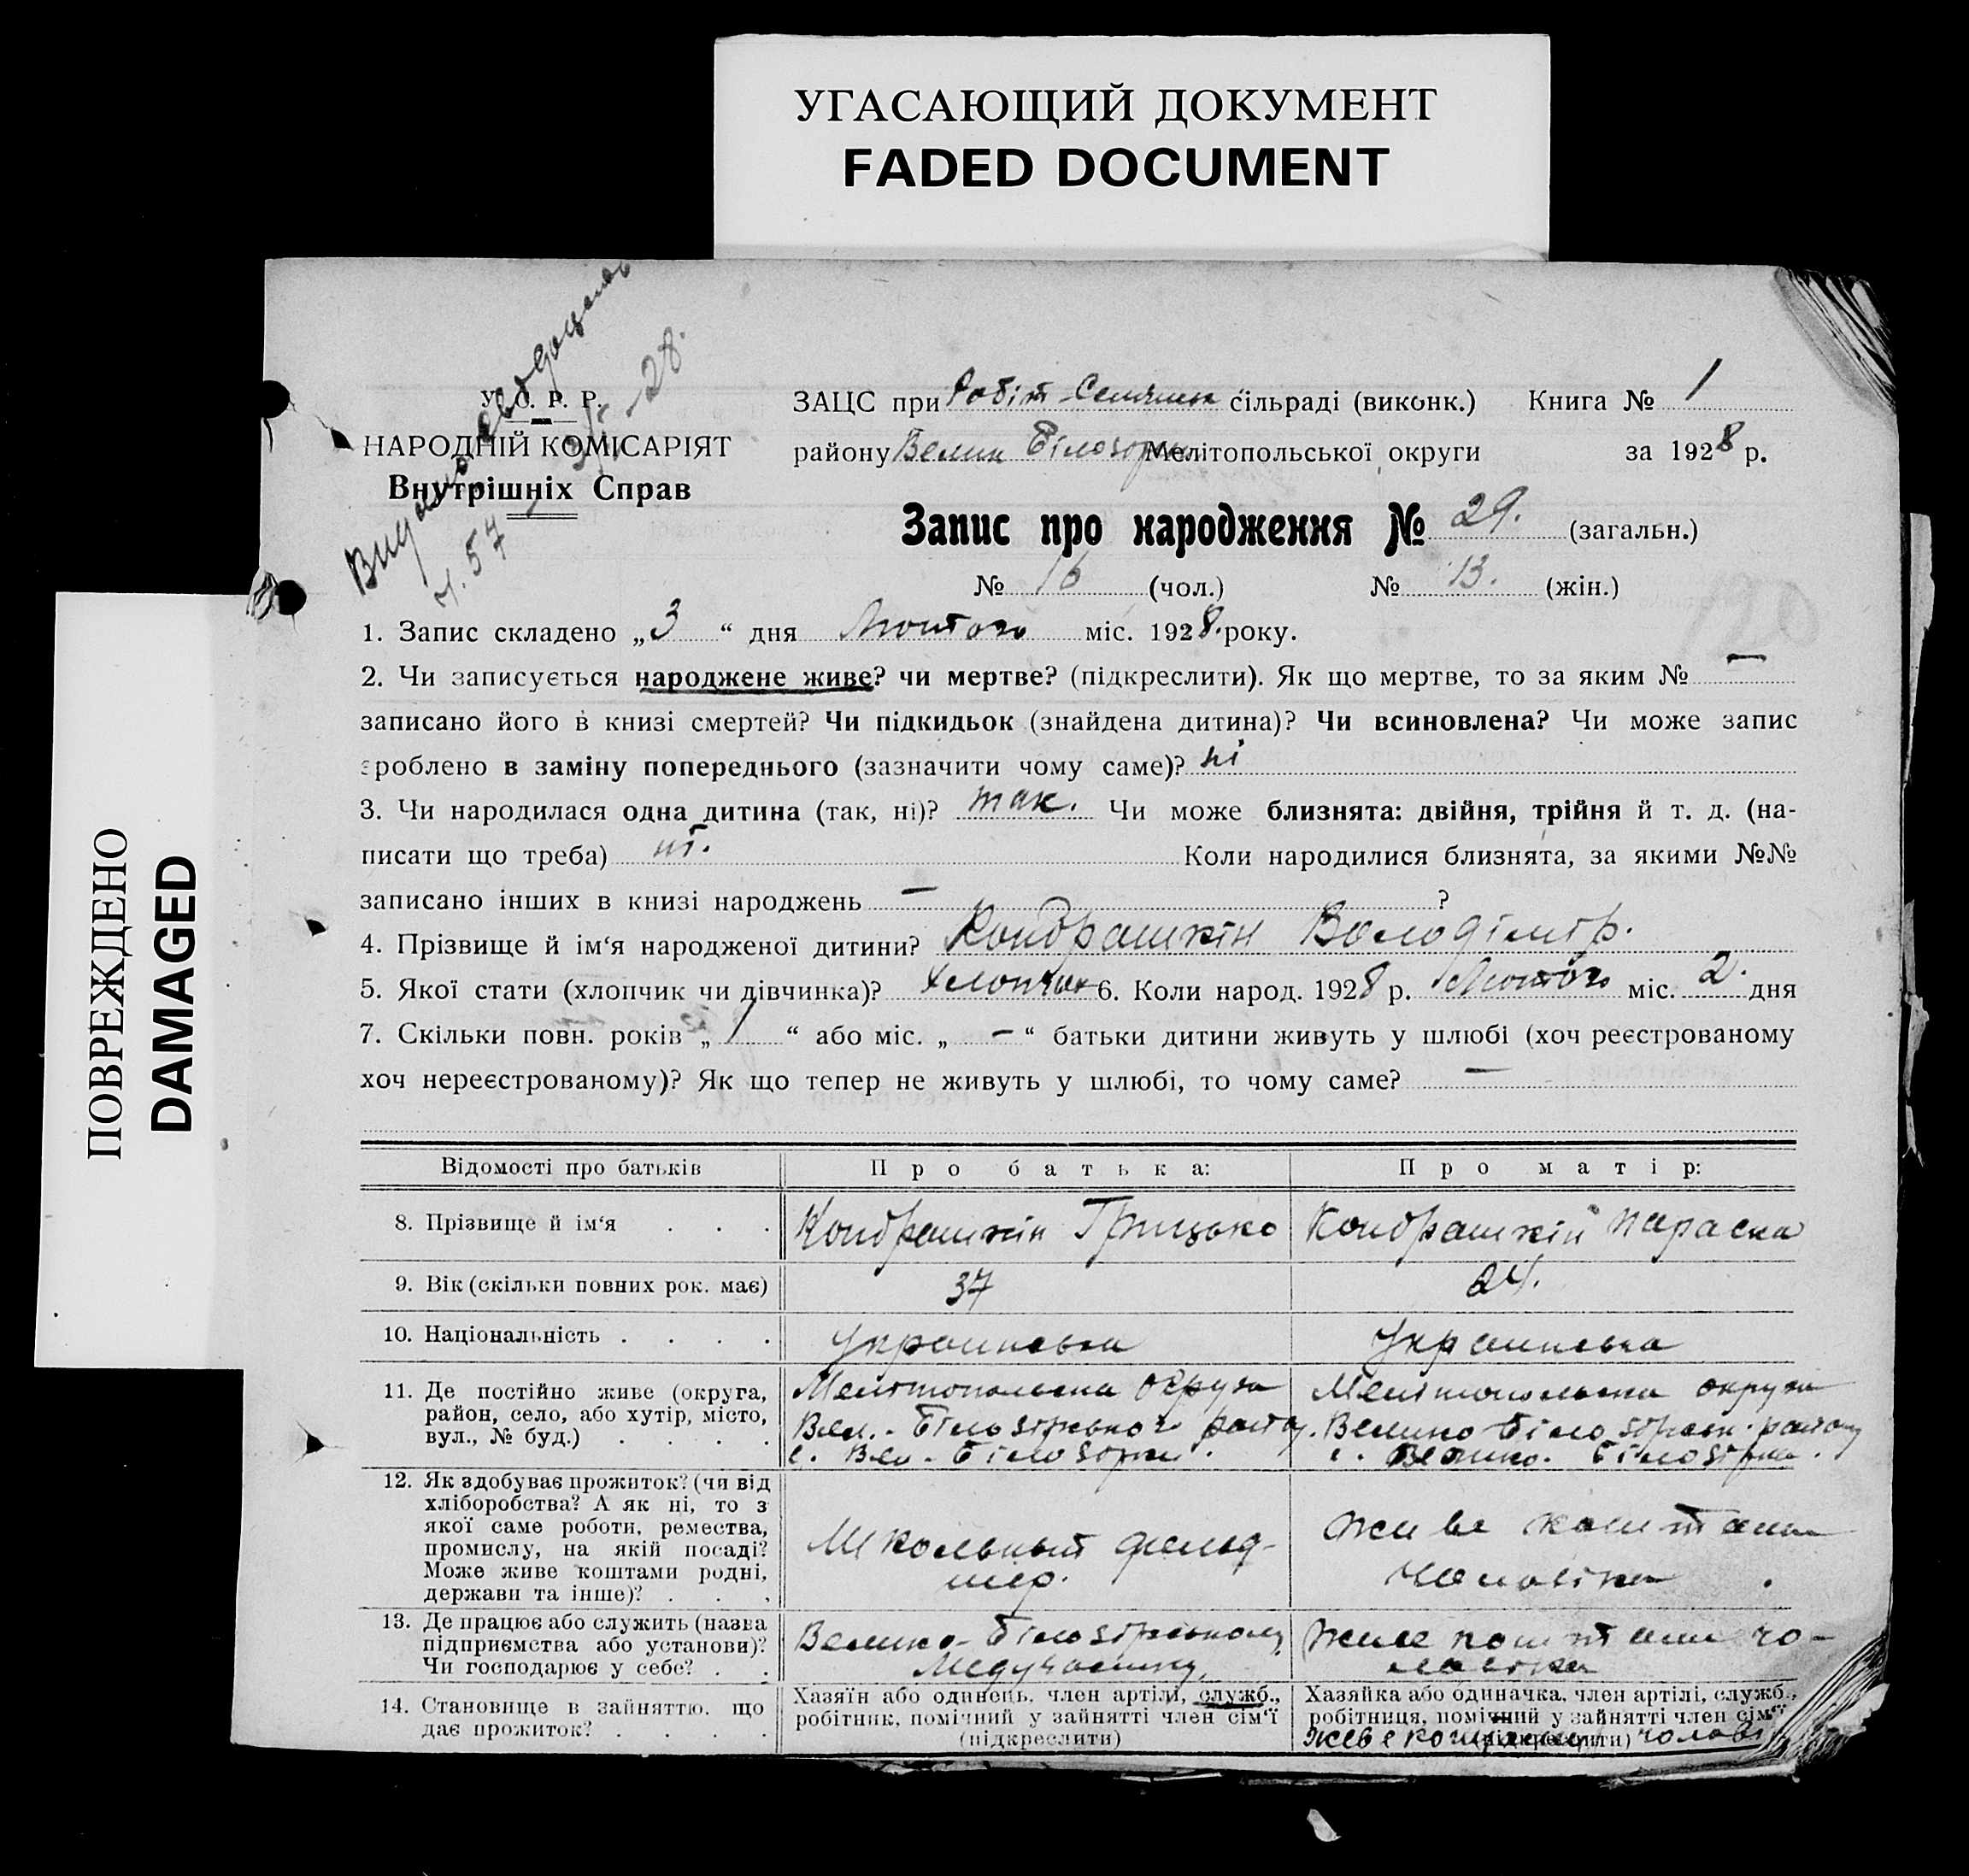 УГАСАЮЩИЙ ДОКУМЕНТ
FADED DOCUMENT
ПОВРЕЖДЕНО
DAMAGED
Видано
ч. 57 -28.
У. С. Р. Р.
НАРОДНІЙ КОМІСАРІЯТ
Внутрішніх Справ
ЗАЦС при Робіт-Селянськ сільраді (виконк.) Книга № 1
району Велик Білозірка Мелітопольської округи за 1928 р.
Запис про народження № 29. (загальн.)
№ 16 (чол.) № 13. (жін.)
120
1. Запис складено „3“ дня Лютого міс. 1928. року.
2. Чи записується народжене живе? чи мертве? (підкреслити). Як що мертве, то за яким № —
записано його в книзі смертей? Чи підкидьок (знайдена дитина)? Чи всиновлена? Чи може запис
зроблено в заміну попереднього (зазначити чому саме)? ні
3. Чи народилася одна дитина (так, ні)? так. Чи може близнята: двійня, трійня й т. д. (на-
писати що треба) ні. Коли народилися близнята, за якими №№
записано інших в книзі народжень — ?
4. Прізвище й ім‘я народженої дитини? Кондрашкін Володімір.
5. Якої стати (хлопчик чи дівчинка)? Хлопчик 6. Коли народ. 1928 р. Лютого міс. 2. дня
7. Скільки повн. років „1“ або міс. „—“ батьки дитини живуть у шлюбі (хоч реєстрованому
хоч нереєстрованому)? Як що тепер не живуть у шлюбі, то чому саме? —
Відомості про батьків Про батька: Про матір:
8. Прізвище й ім‘я . . . Кондрашкін Грицько Кондрашкін Параска
9. Вік (скільки повних рок. має) 37 24.
10. Національність . . . . Украинська Украинська
11. Де постійно живе (округа, Мелітопольська округа Мелітопольська округа
район, село, або хутір, місто, Вел.-Білозірського району. Велико Білозірськ. району
вул., № буд.) . . . . с. Вел.-Білозірка. с. Велико. Білозірка.
12. Як здобуває прожиток? (чи від
хліборобства? А як ні, то з
якої саме роботи, ремества,
промислу, на якій посаді? Школьный фельд- живе коштами
Може живе коштами родні, шер. чоловіка.
держави та інше)? . . .
13. Де працює або служить (назва Велико-Білозірському Живе коштами чо-
підприємства або установи)? Медучастку. ловіка
Чи господарює у себе? . .
14. Становище в зайняттю, що Хазяїн або одинець, член артілі, служб., Хазяйка або одиначка, член артілі, служб.,
дає прожиток? . . . . робітник, помічний у зайнятті член сім‘ї робітниця, помічний у зайнятті член сім‘ї
(підкреслити) (підкреслити)
живе коштами чолові